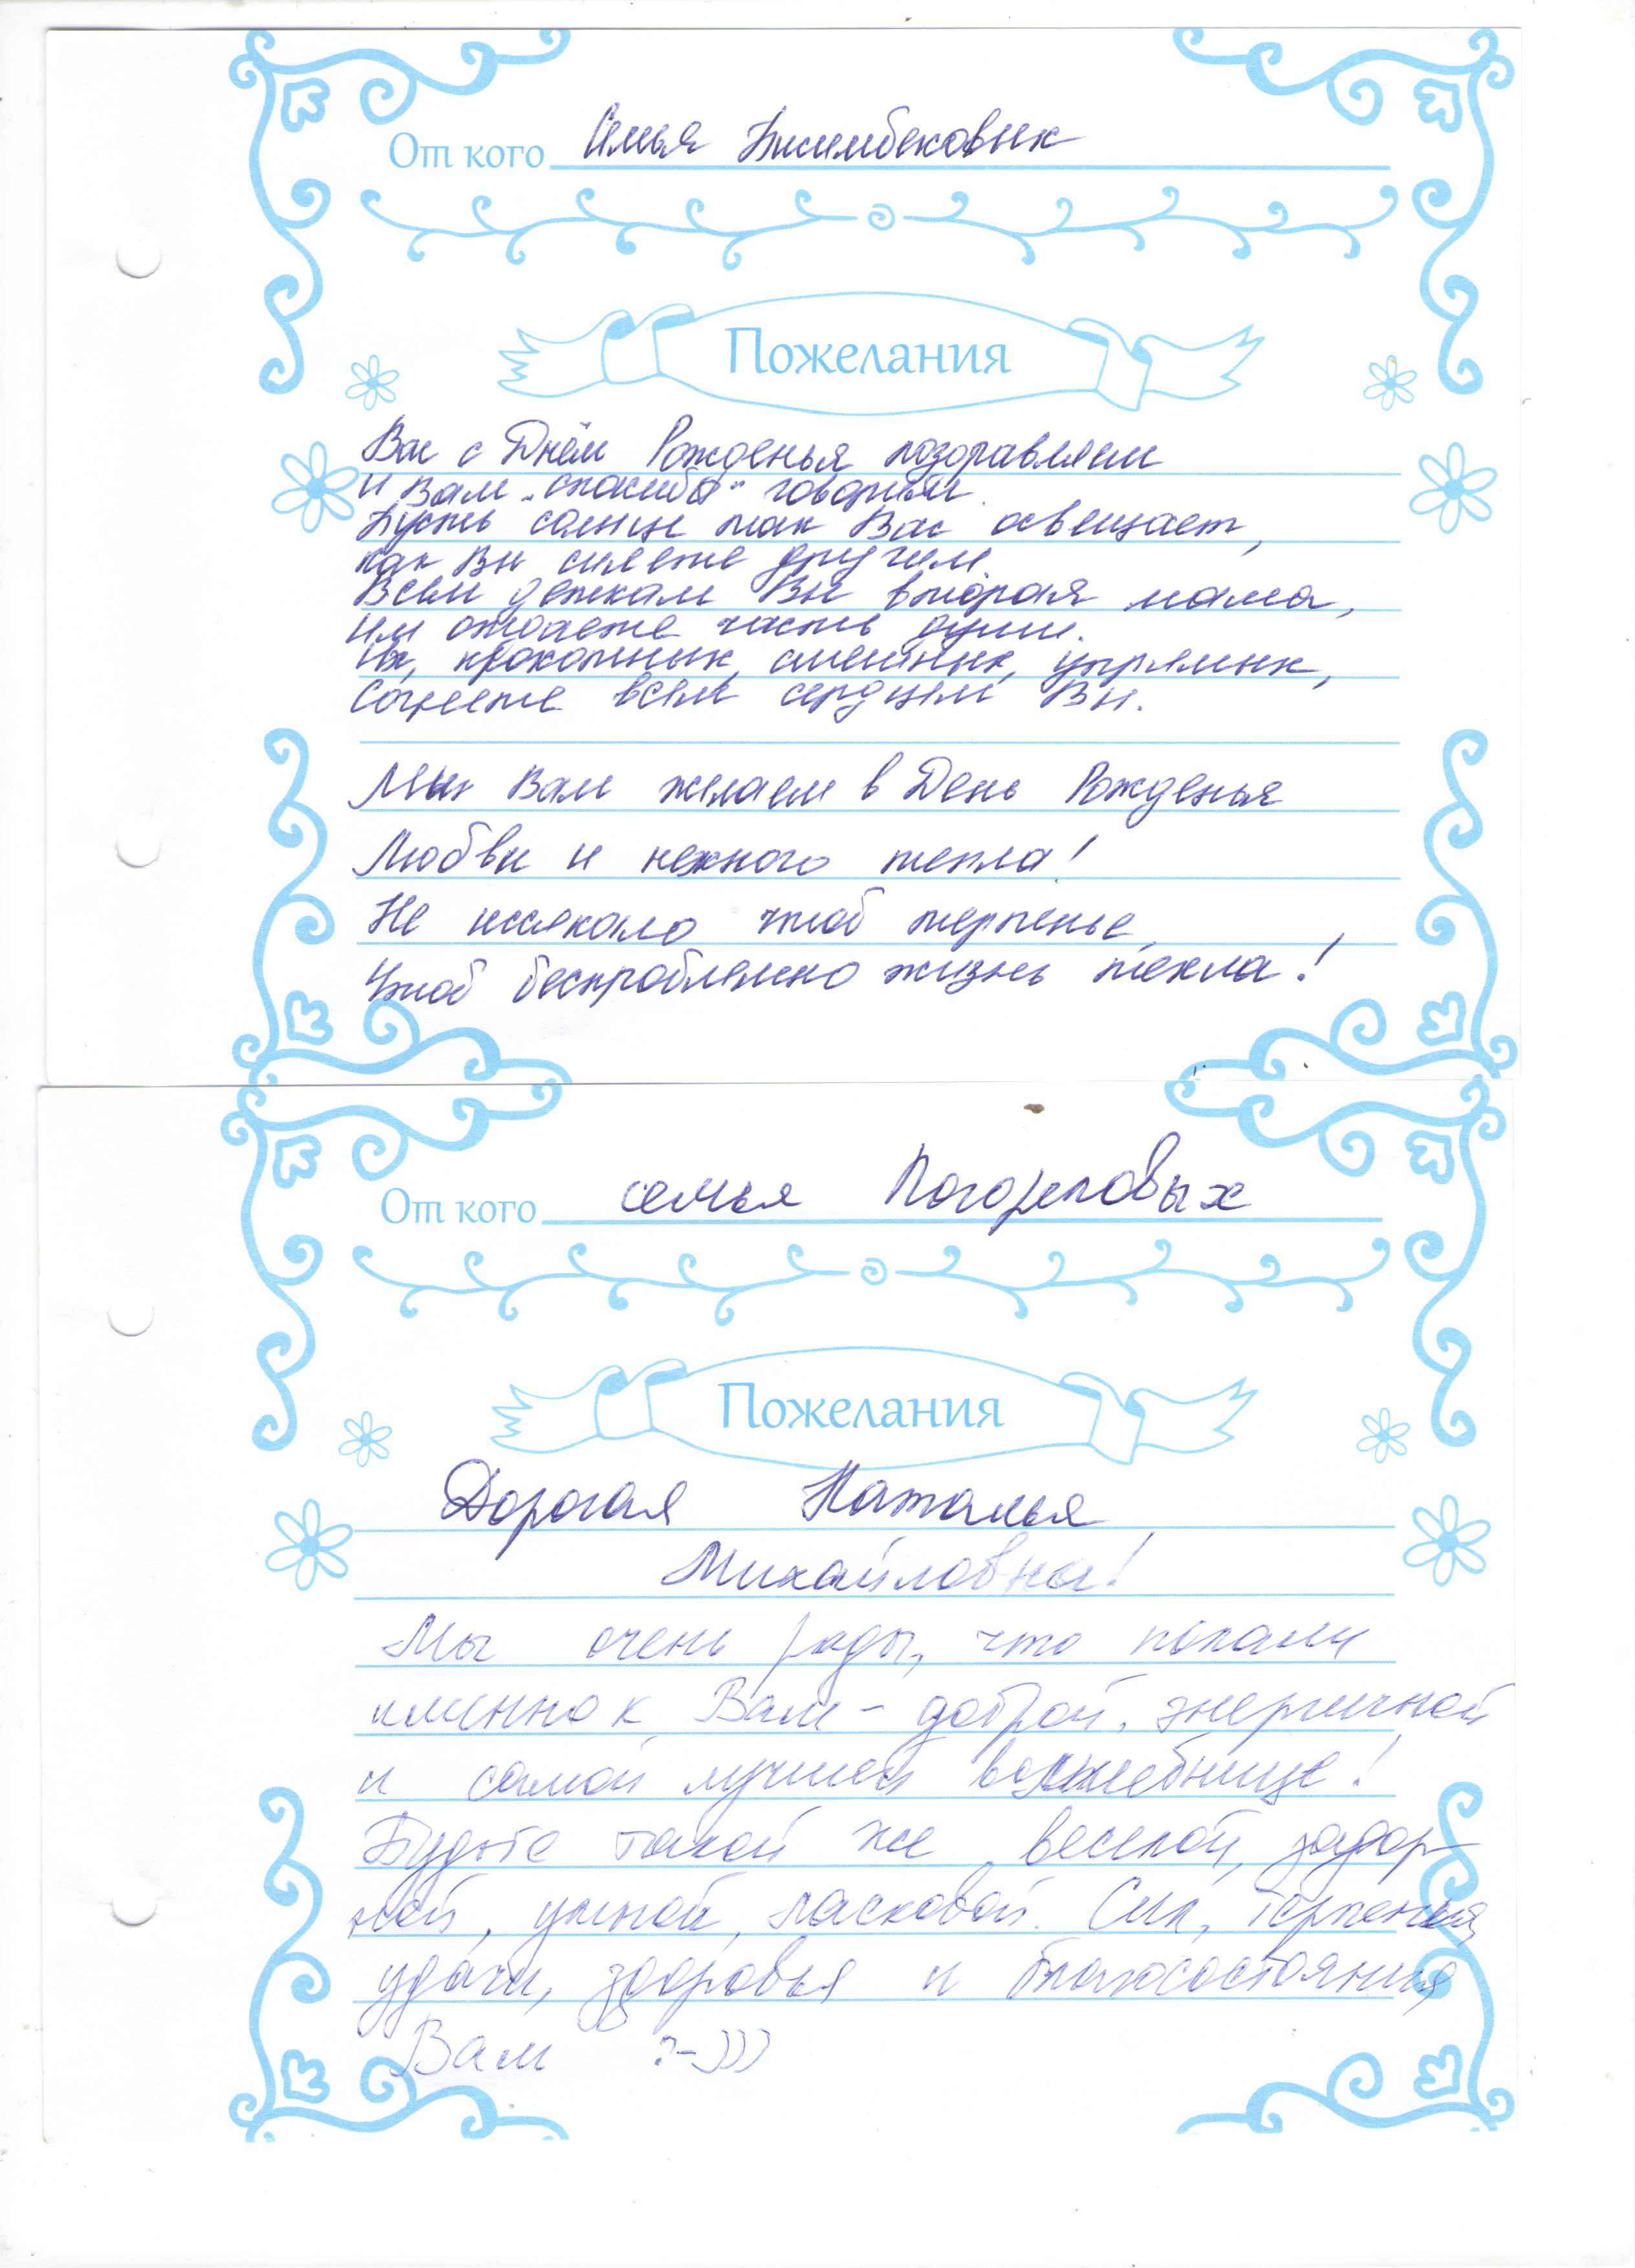 От кого Семья
Пожелания
Вас с Днём Рожденья поздравляем
и Вам „спасибо" говорим.
Пусть солнце так Вас освещает,
как Вы сияете другим.
Всем деткам Вы вторая мама,
им отдаёте часть души.
Их, крохотных, смешных, упрямых,
Согреете всем сердцем Вы.
Мы Вам желаем в День Рожденья
Любви и нежного тепла!
Не иссякало чтоб терпенье,
Чтоб беспроблемно жизнь текла!
От кого семья Погореловых
Пожелания
Дорогая Наталья
Михайловна!
Мы очень рады, что попали
именно к Вам - доброй, энергичной
и самой лучшей волшебнице!
Будьте такой же веселой, задор-
ной, умной, ласковой. Сил, терпения,
удачи, здоровья и благосостояния
Вам :-)))